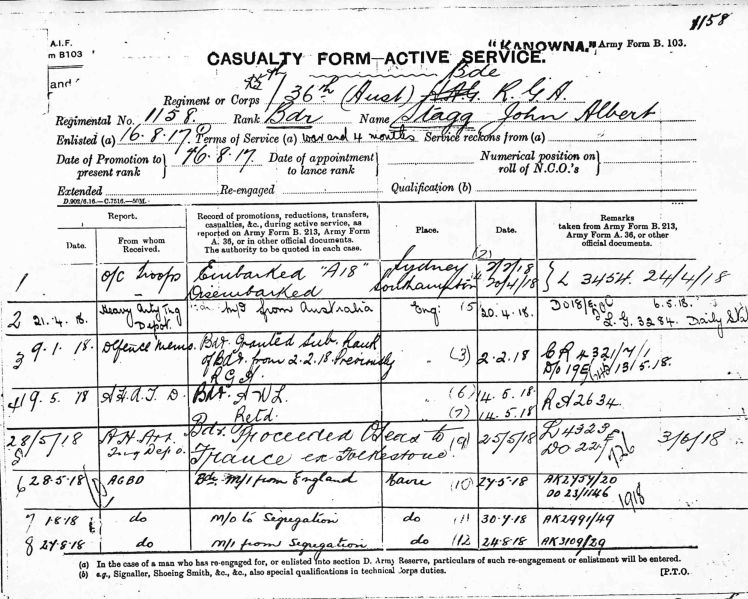 1158
A.I.F.
m B103
and
"KANOWNA." Army Form B. 103.
CASUALTY FORM—ACTIVE SERVICE.
Bde
Regiment or Corps 36th (Aust) R.G.A.
Regimental No. 1158. Rank Bdr Name Stagg John Albert
Enlisted (a) 16.8.17. Terms of Service (a) war and 4 months Service reckons from (a)
Date of Promotion to present rank } 16.8.17. Date of appointment to lance rank } Numerical position on roll of N.C.O.'s }
Extended Re-engaged Qualification (b)
D.902/6.16.—C.7516.—50M.
Report. Record of promotions, reductions, transfers, casualties, &c., during active service, as reported on Army Form B. 213, Army Form A. 36, or in other official documents. The authority to be quoted in each case. Place. Date. Remarks taken from Army Form B. 213, Army Form A. 36, or other official documents.
Date. From whom Received.
1 O/C Troops Embarked "A18" Sydney (2) 2/2/18 } L 3454. 24/4/18
Disembarked Southampton 20/4/18
2 21.4.18. Heavy Arty Trg Depot. m/i from Australia Eng: (5 20.4.18. DO18/ 6.5.18.
L.G. 3284. Daily
3 9.1.18. Defence Memo. Bdr. Granted Sub. Rank " (3) 2.2.18 CR 4321/7/1
of Bdr. from 2.2.18. Previously DO 19 131 5.18.
RGA.
4 19.5.18 Bdr. A W L. " (6) 14.5.18. RA2634.
Retd. (7) 14.5.18
5 28/5/18 Trng Depo. Bdr. Proceeded O'seas to " (9) 25/5/18 L4323 3/6/18
France ex Folkestone DO 22/ 126
6 28.5.18 AGBD Bdr m/i from England Havre (10) 27.5.18 AK2757/20
DO 23/1146 1918
7 1.8.18 do m/o to Segregation do (11 30.7.18 AK2991/49
8 27.8.18 do m/i from Segregation do (12 24.8.18 AK3109/29
(a) In the case of a man who has re-engaged for, or enlisted into section D. Army Reserve, particulars of such re-engagement or enlistment will be entered.
(b) e.g., Signaller, Shoeing Smith, &c., &c., also special qualifications in technical Corps duties. [P.T.O.